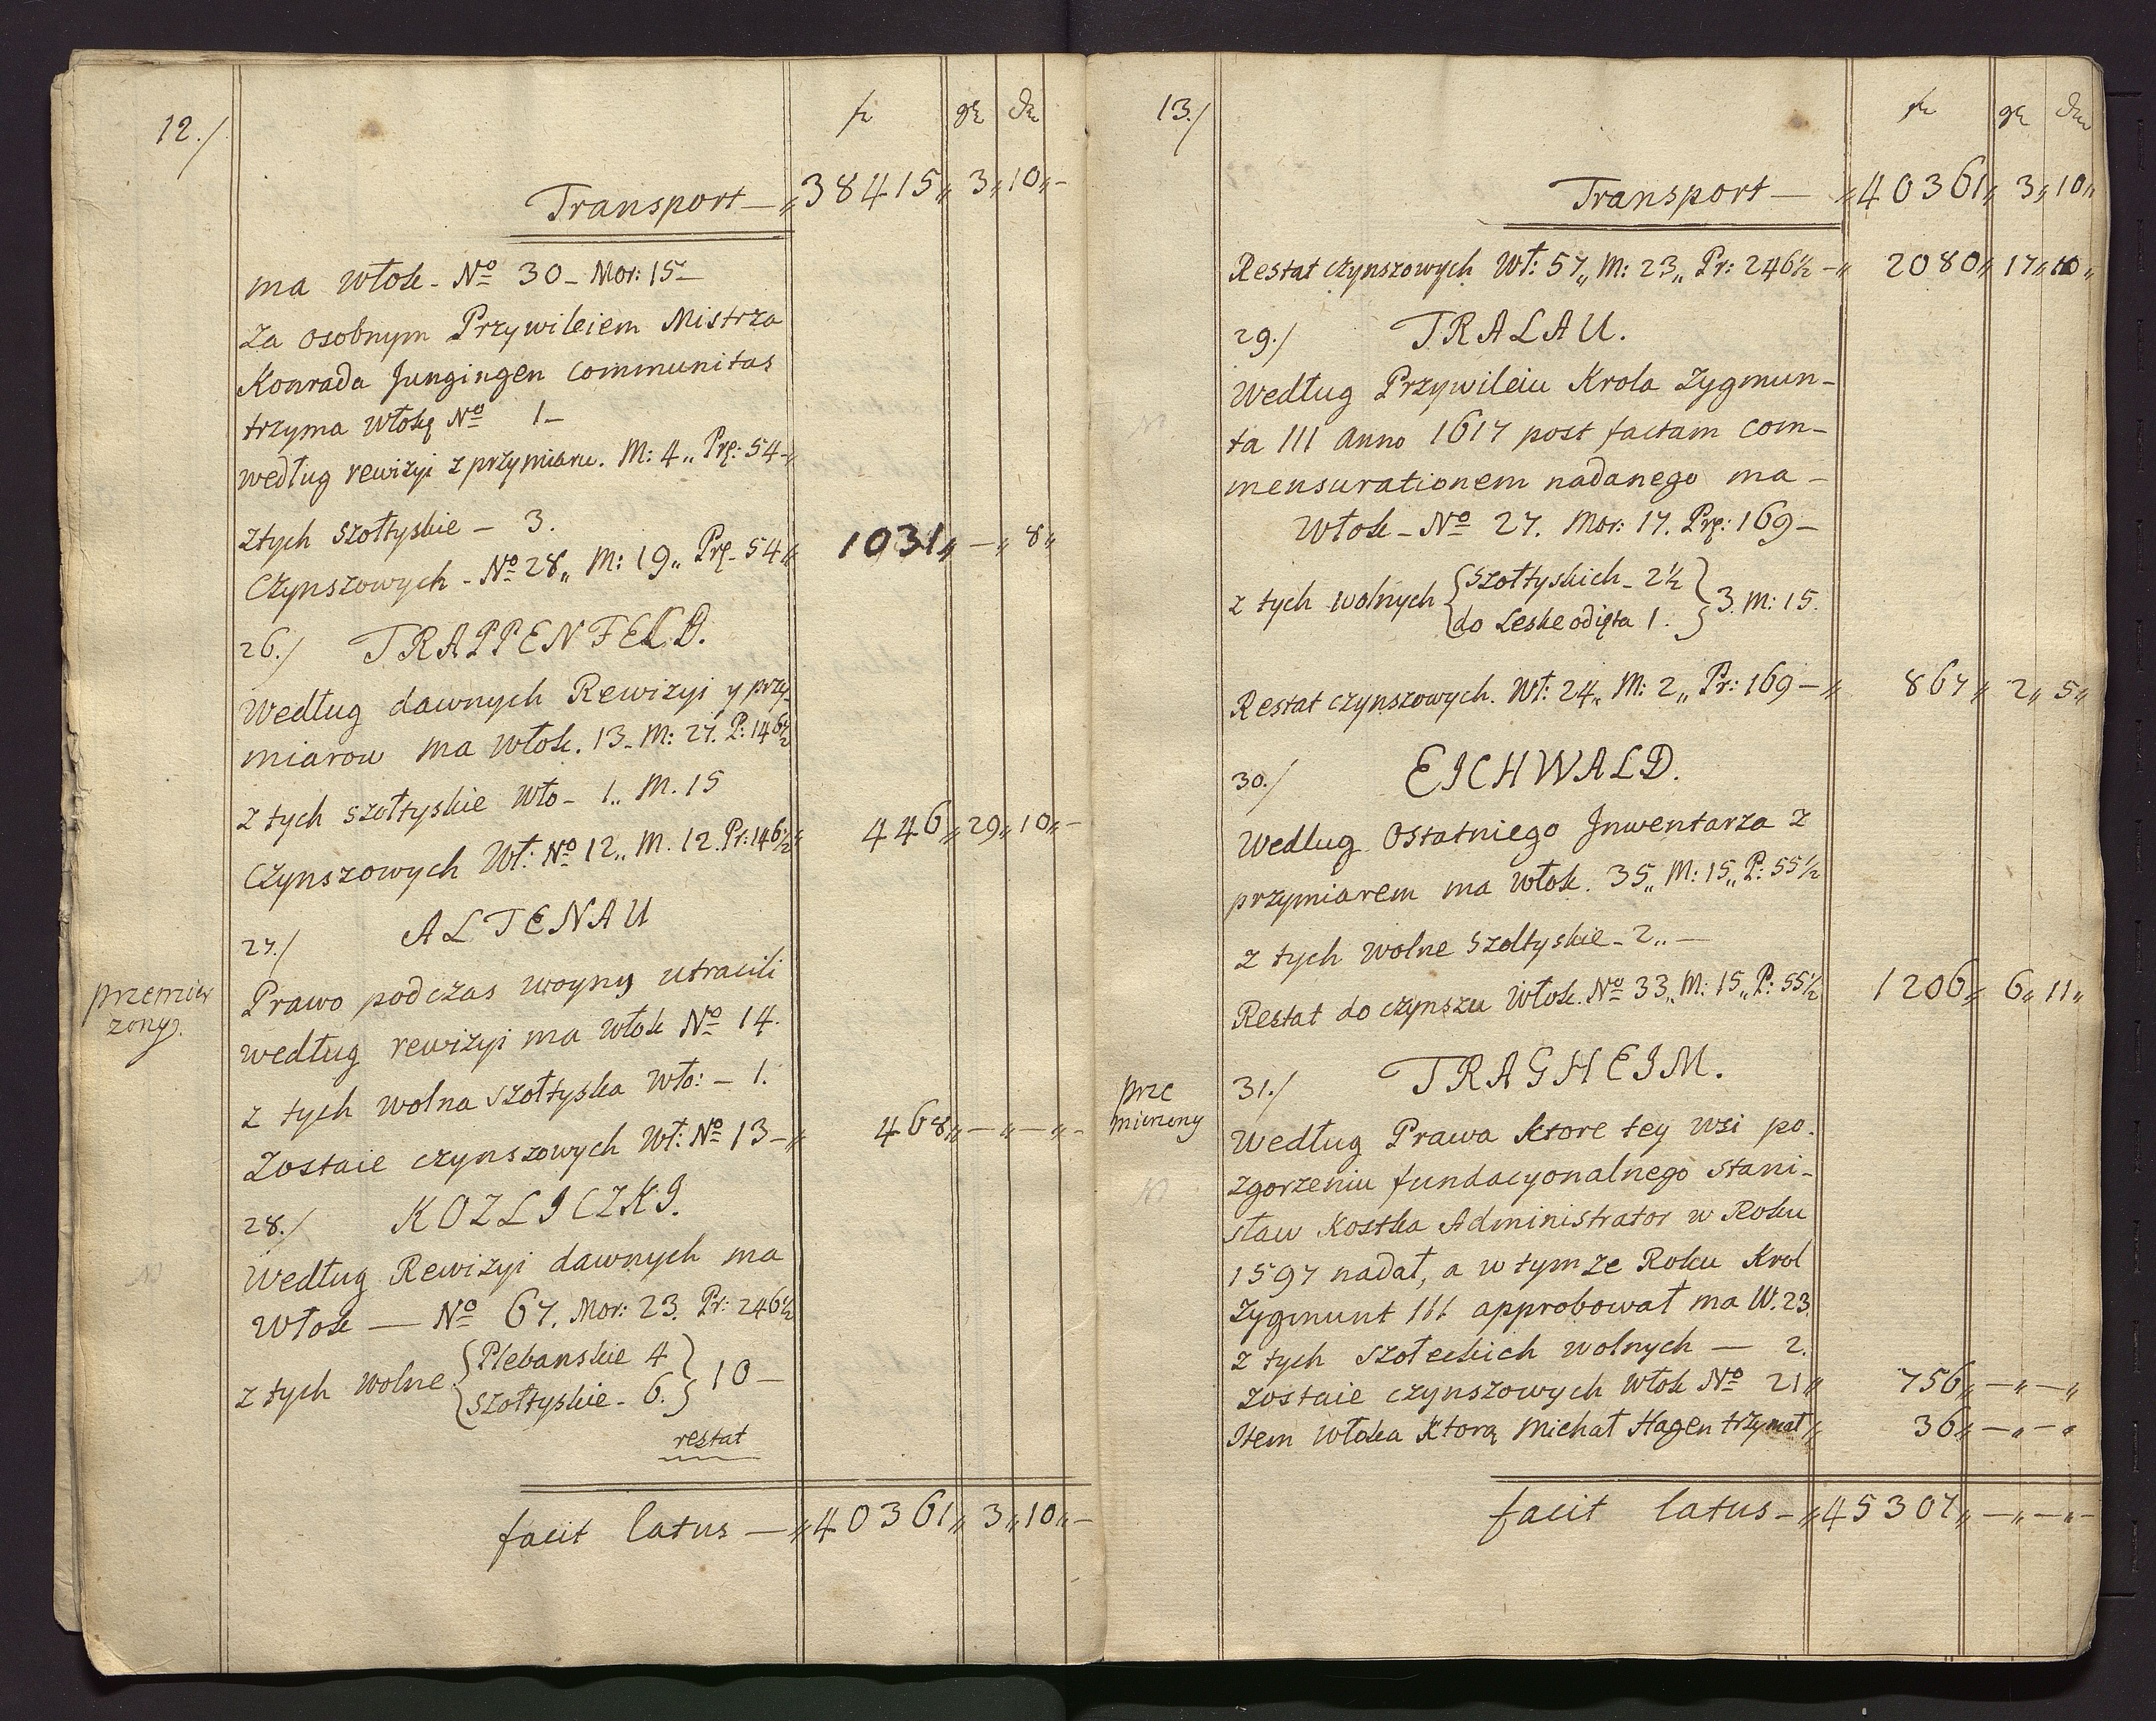 12./
fr gr dn
Transport — „ 38415 „ 3 „ 10 „ –
ma włok - No 30 - Mor: 15 -
Za osobnym Przywileiem Mistrza
Konrada Jungingen Communitas
trzyma włokę No 1 -
według rewizyi z przymiaru. M: 4 „ Prę: 54 - „
Ztych szołtyskie - 3.
Czynszowych - No 28 „ M: 19 „ Prę - 54 „ 1031 „ — „ 8 „
26./ TRAPPENFELD.
Według dawnych Rewizyi y przy-
miarow ma włok. 13 - M: 27. P: 146½
z tych szołtyskie Wło - 1 „ M. 15
Czynszowych Wł: No 12 „ M. 12. Pr: 146½ „ 446 „ 29 „ 10 „ –
27./ ALTENAU
przemier
zony.
Prawo podczas woyny utracili
według rewizyi ma włok No 14.
z tych wolna szołtyska Wło: - 1.
Zostaie czynszowych Wł: No 13 - „ 468 „ — „ — „ –
28./ KOZLICZKI.
Według Rewizyi dawnych ma
Włok — No 67. Mor: 23. Pr: 246½
z tych wolne { Plebanskie 4
szołtyskie - 6. } 10 –
restat
facit latus — „ 40361 „ 3 „ 10 „ –
13./
fr gr dn
Transport — „ 40361 „ 3 „ 10 „
Restat czynszowych Wł: 57 „ M: 23 „ Pr: 246½ - „ 2080 „ 17 „ 10 „
29./ TRALAU.
Według Przywileiu Krola Zygmun-
ta III Anno 1617 post factam com-
mensurationem nadanego ma -
Włok - No 27. Mor: 17. Prę: 169 -
z tych wolnych { szołtyskich - 2½
do Leske odięta 1. } 3. M: 15.
Restat czynszowych. Wł: 24 „ M: 2 „ Pr: 169 - „ 867 „ 2 „ 5 „
30./ EICHWALD.
Wedlug Ostatniego Jnwentarza z
przymiarem ma włok. 35 „ M: 15 „ P: 55½
z tych wolne szoltyskie - 2 „ —
Restat do czynszu Włok. No 33 „ M: 15 „ P: 55½ 1206 „ 6 „ 11 „
prze
mierzony
31./ TRAGHEIM.
Według Prawa ktore tey wsi po.
zgorzeniu fundacyonalnego Stani-
sław Kostka Administrator w Roku
1597 nadał, a w tym ze Roku Krol
Zygmunt III approbował ma W. 23.
z tych szołeckich wolnych — 2.
zostaie czynszowych włok No 21 „ 756 „ — „ — „
Item włoka Ktorą Michał Hagen trzymał „ 36 „ — „ — „
facit latus - „ 45307 „ — „ — „ –